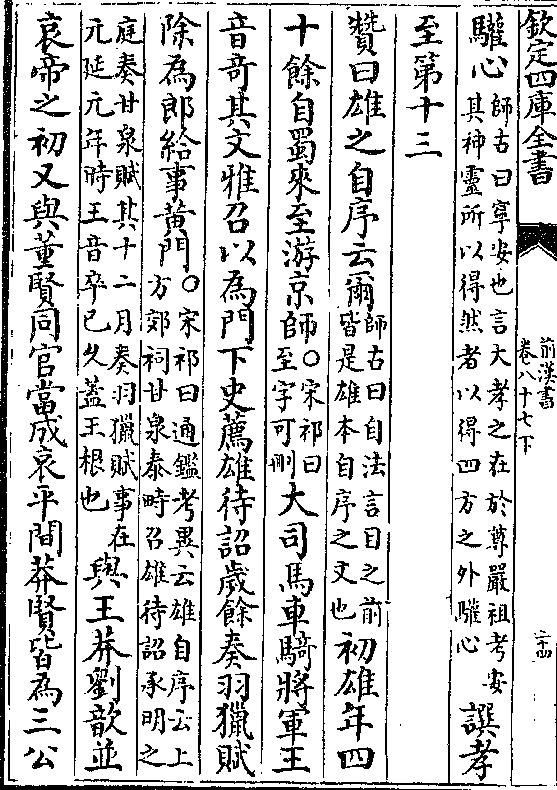 欽定四庫全書
前漢書
卷八十七下
二十四
驩心師古曰寧安也言大孝之在於尊嚴祖考安其神靈所以得然者以得四方之外驩心譔孝
至第十三
贊曰雄之自序云爾師古曰自法言目之前皆是雄本自序之文也初雄年四
十餘自蜀來至游京師○宋祁曰至字可刪大司馬車騎將軍王
音奇其文雅召以為門下史薦雄待詔歲餘奏羽獵賦
除為郎給事黃門○宋祁曰通鑑考異云雄自序云上方郊祠甘泉泰畤召雄待詔承明之
庭奏甘泉賦其十二月奏羽獵賦事在元延元年時王音卒已久蓋王根也與王莽劉歆並
哀帝之初又與董賢同官當成哀平間莽賢皆為三公